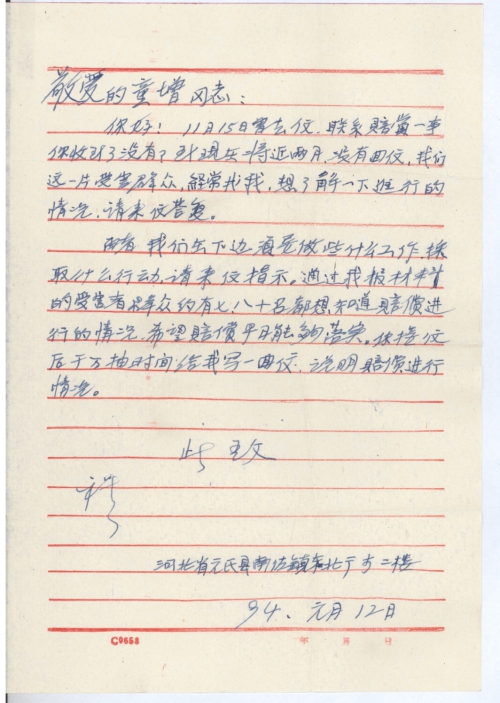 敬爱的童增同志：
你好！11月15日寄去信，联系赔偿一事
你收到了没有？到现在将近两月，没有回信，我们
这一片受害群众，经常找我，想了解一下进行的
情况，请来信答复。
再有我们在下边，须要做些什么工作，採
取什么行动，请来信指示。通过我报材料
的受害者群众约有七、八十名都想知道赔偿进
行的情况，希望赔偿早日能够落实。你接信
后千万抽时间给我写一回信，说明赔偿进行
情况。
此致
河北省元氏县南佐镇
二楼
94.元月12日
C0658 年 月 日